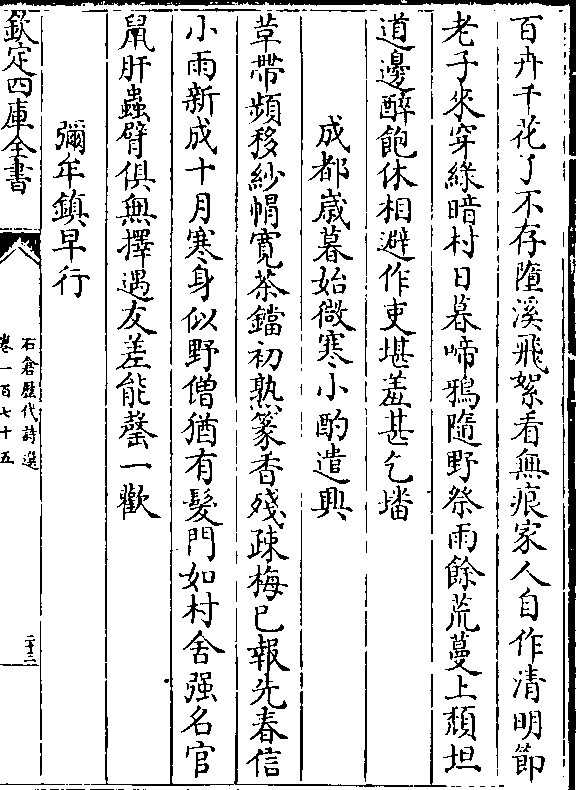 百卉千花了不存墮溪飛絮看無痕家人自作清明節
老子來穿綠暗村日暮啼鴉隨野祭雨餘荒蔓上頽坦
道邊醉飽休相避作吏堪羞甚乞墦
成都嵗暮始微寒小酌遣興
草帶頻移紗帽寛茶鐺初熟篆香殘疎梅已報先春信
小雨新成十月寒身似野僧猶有髮門如村舍强名官
鼠肝蟲臂俱無擇遇友差能罄一歡
彌牟鎮早行
欽定四庫全書
石倉歷代詩選
卷一百七十五
二十三